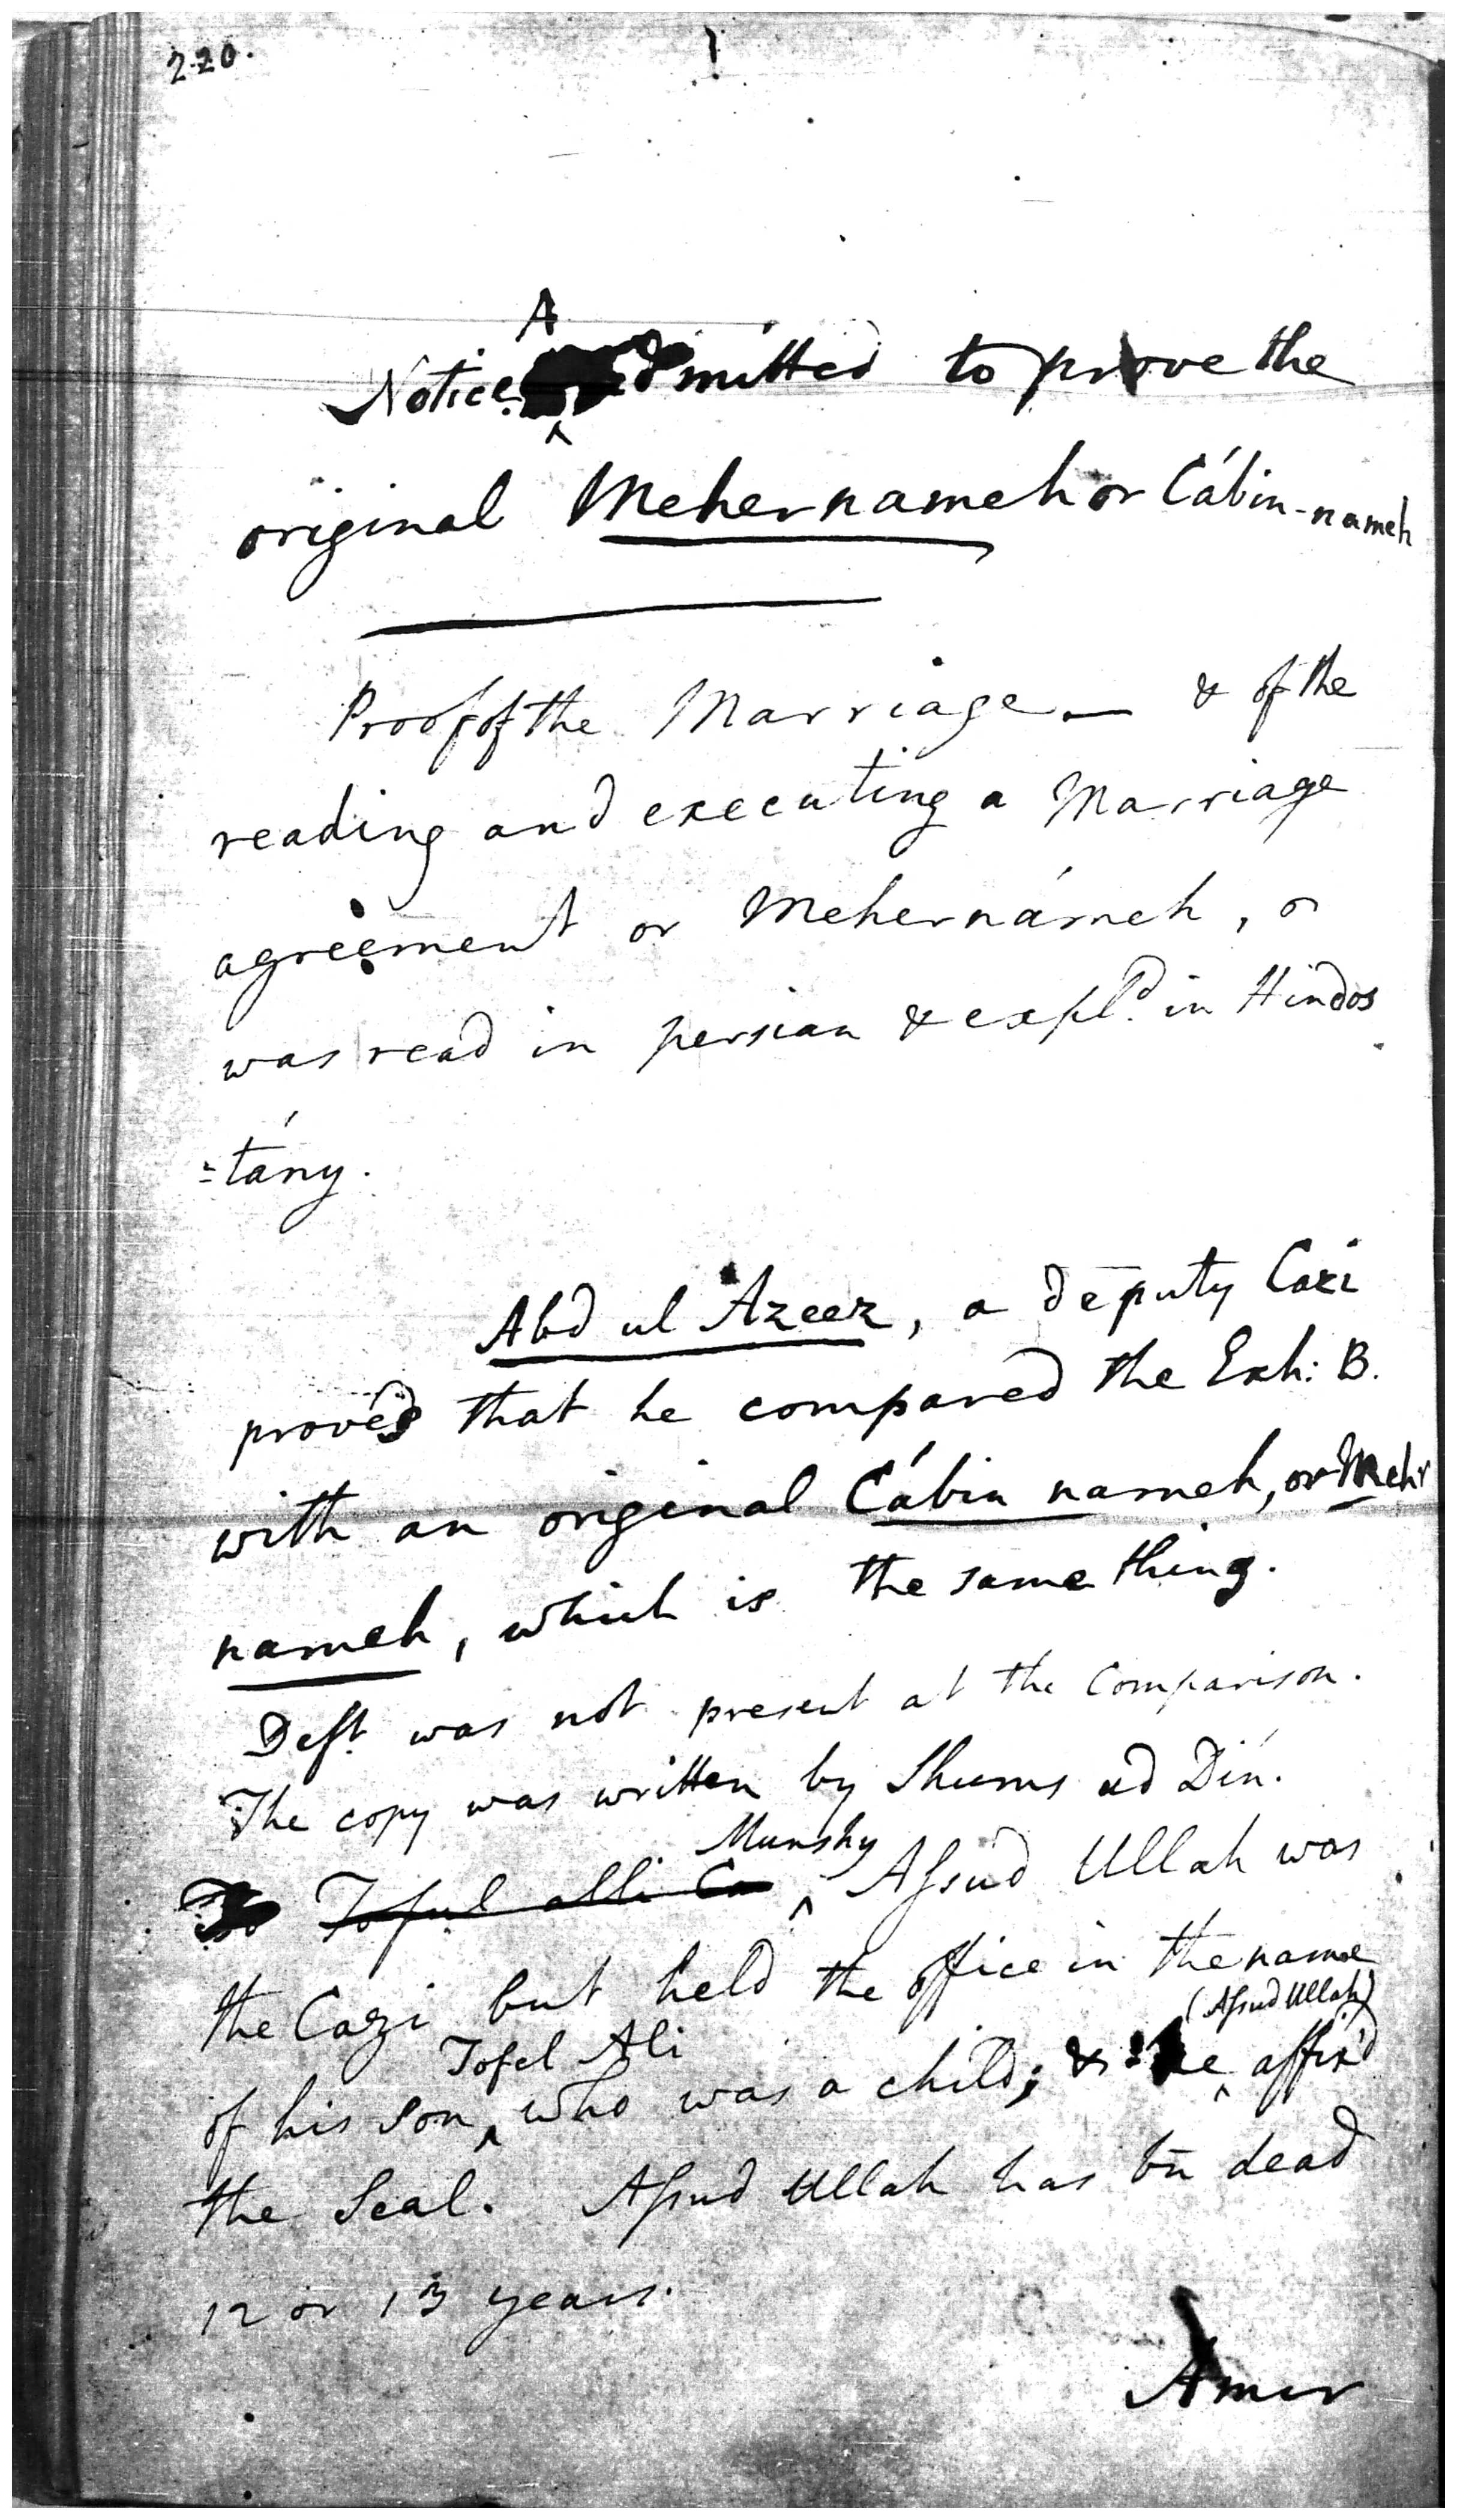 220.
Notice. Admitted to prove the
original Mehernameh or Cábin-nameh
Proof of the Marriage — & of the
reading and executing a Marriage
agreement or Mehernámeh, or
was read in persian & expl.d in Hindos
=tány.
Abd ul Azeez, a deputy Cazi
proved that he compared the Exh: B.
with an original Cábin nameh, or Mehr
nameh, which is the same thing.
Deft. was not present at the Comparison.
The copy was written by Shums ud Dín.
Toful alli Ca Munshy Assud Ullah was
the Cazi but held the office in the name
of his son Tofel Ali who was a child; & he (Assud Ullah) affix'd
the Seal. Assud Ullah has bn dead
12 or 13 years.
Amir